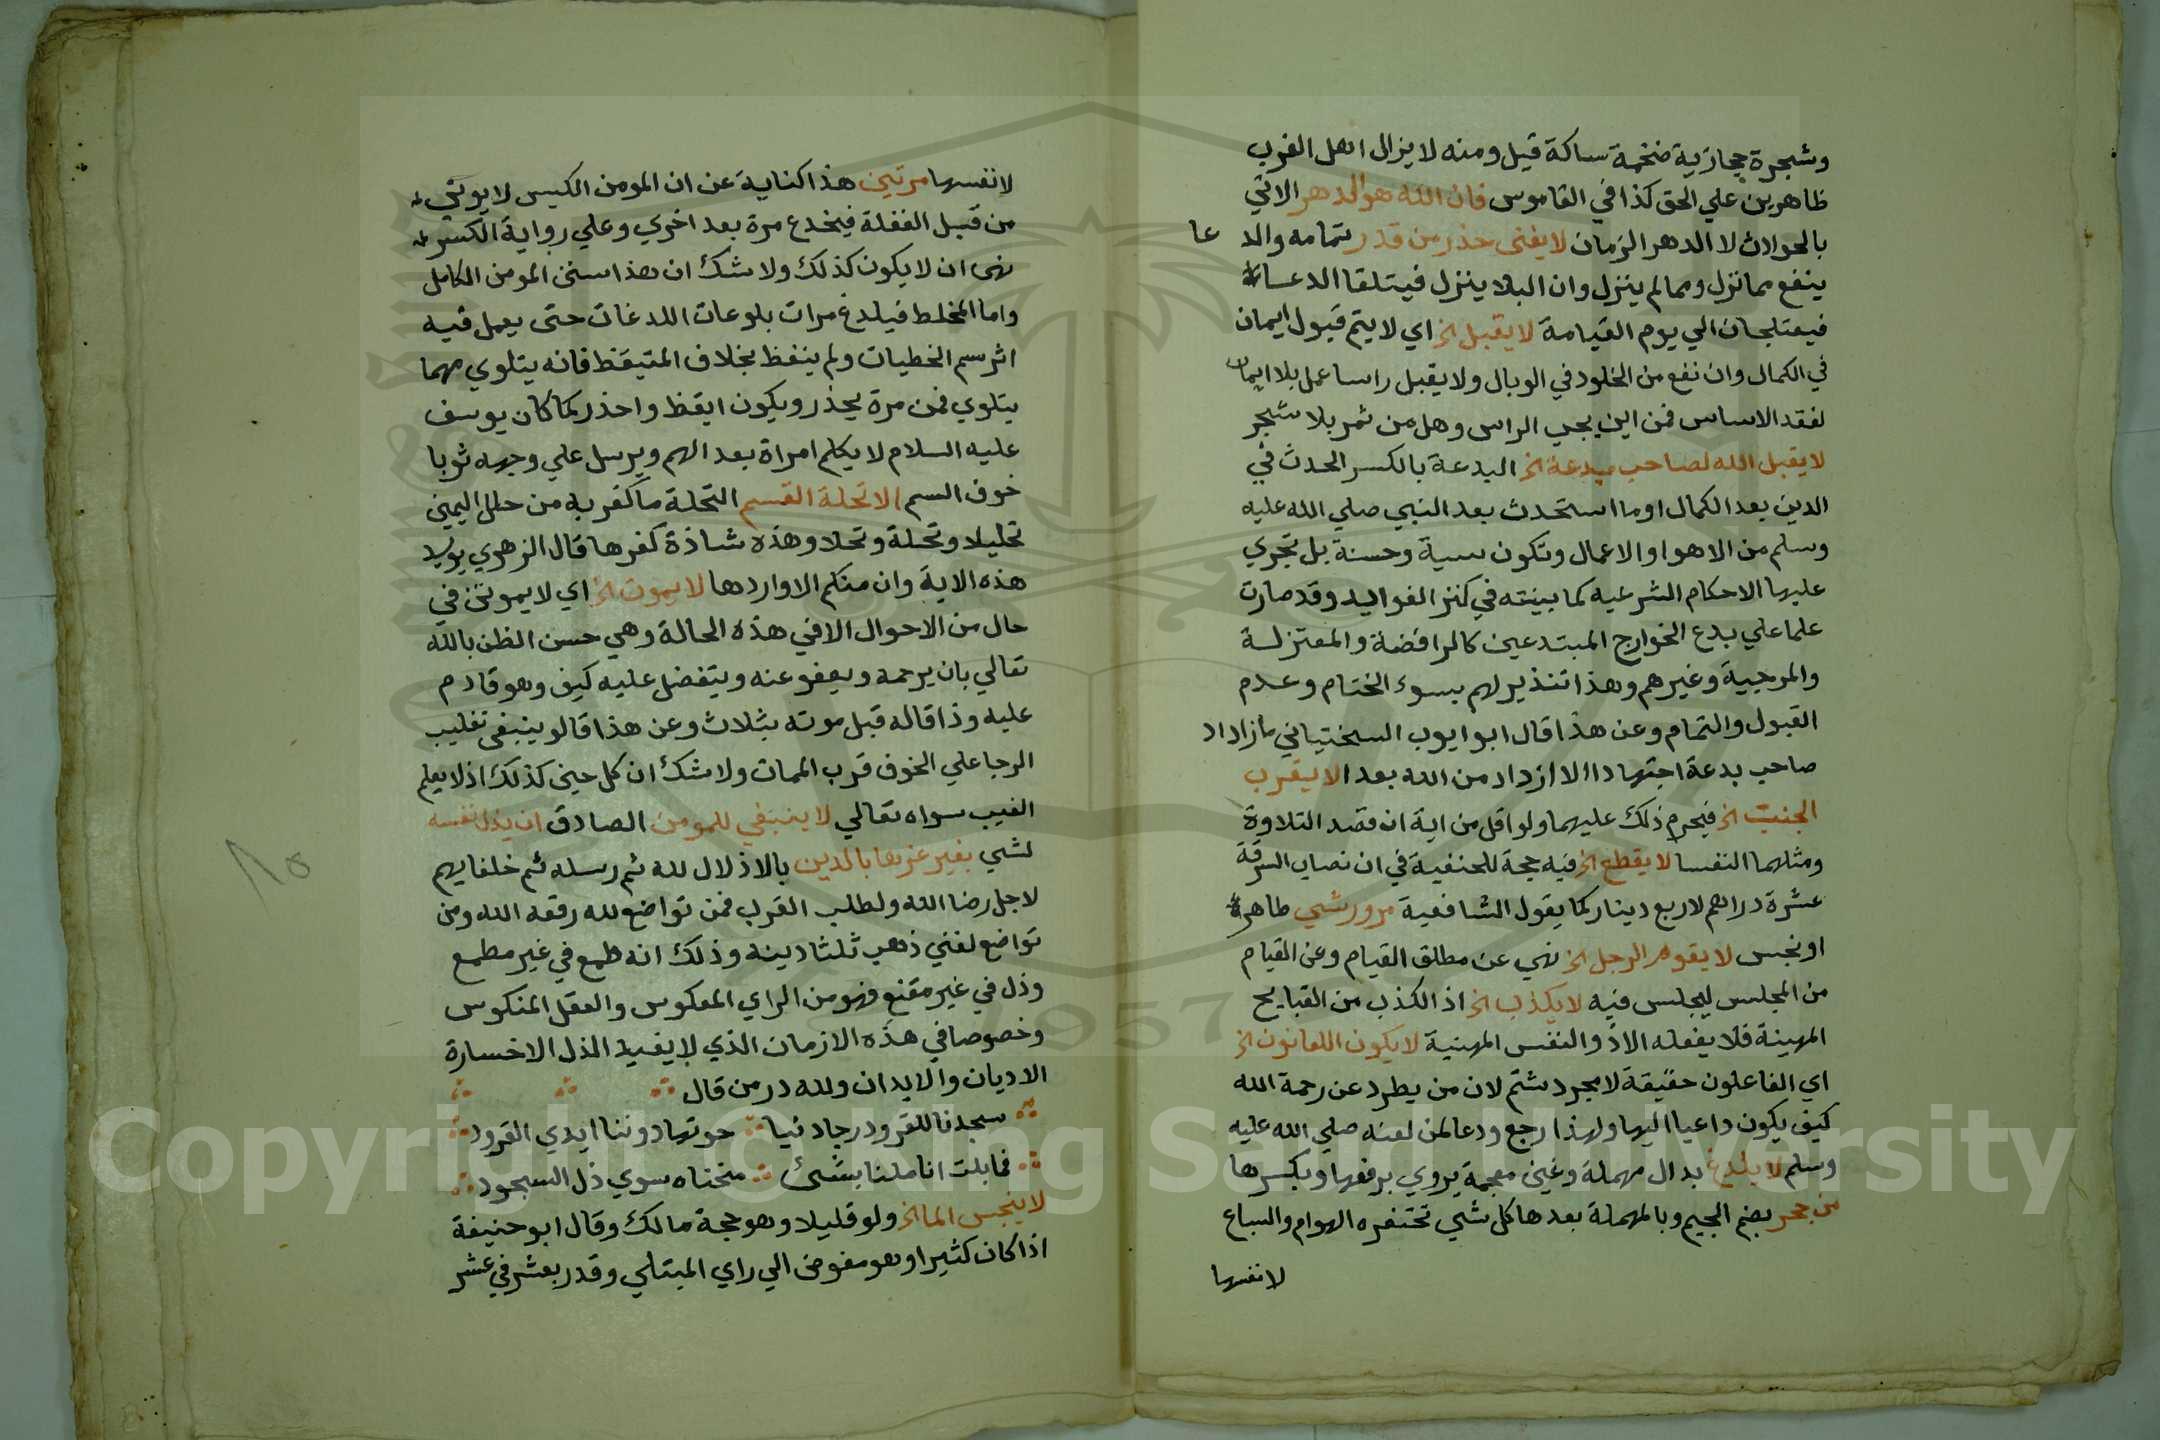 وشجرة حجازية ضخمة ساكة قيل ومنه لا يزال اهل الغرب
ظاهرين علي الحق كذا في القاموس فان الله هو الدهر الاتي
بالحوادث لا الدهر الزمان لا يغني حذر من قدر تمامه والدعا
ينفع مما نزل ومما لم ينزل وان البلا ينزل فيتلقا الدعا
فيعتلجان الي يوم القيامة لا يقبل الخ اي لا يتم قبول ايمان
في الكمال وان نفع من الخلود في الوبال ولا يقبل راسا عمل بلا ايمان
لفقد الاساس فمن اين يجي الراس وهل من ثمر بلا شجر
لا يقبل الله لصاحب بدعة الخ البدعة بالكسر الحدث في
الدين بعد الكمال او ما استحدث بعد النبي صلي الله عليه
وسلم من الاهوا والاعمال وتكون سية وحسنة بل تجري
عليها الاحكام الشرعيه كما بينته في كنز الفوايد وقد صارت
علما علي بدع الخوارج المبتدعين كالرافضة والمعتزلة
والمرجية وغيرهم وهذا تنذير لهم بسوء الختام وعدم
القبول والتمام وعن هذا قال ابو ايوب السختياني ما زاداد
صاحب بدعة اجتهادا الا ازداد من الله بعدا لا يقرب
الجنب الخ فيحرم ذلك عليهما ولو اقل من اية ان قصد التلاوة
ومثلهما النفسا لا يقطع الخ فيه حجة للحنفية في ان نصاب السرقة
عشرة دراهم لا ربع دينار كما يقول الشافعية مرور شي طاهر
او نجس لا يقوم الرجل الخ نهي عن مطلق القيام وعن القيام
من المجلس ليجلس فيه لا يكذب الخ اذ الكذب من القبايح
المهينة فلا يفعله الا ذو النفس المهنية لا يكون اللعانون الخ
اي الفاعلون حقيقة لا مجرد شتم لان من يطرد عن رحمة الله
كيف يكون داعيا اليها ولهذا رجع ودعا لمن لعنه صلي الله عليه
وسلم لا يلدغ بدال مهملة وغين معجمة يروي برفعها وبكسرها
من جحر بضم الجيم وبالمهملة بعدها كل شي تحتفره الهوام والسباع
لانفسها
لانفسها مرتين هذا كناية عن ان المومن الكيس لا يوتي
من قبل الغفلة فيخدع مرة بعد اخري وعلي رواية الكسر
نهي ان لا يكون كذلك ولا شك ان هذا سنن المومن الكامل
واما المخلط فيلدغ مرات بلوعات اللدغات حتي يعمل فيه
اثر سم الخطيات ولم ينفظ بخلاف المتيقظ فانه يتلوي مهما
يتلوي فمن مرة يحذر ويكون ايقظ واحذر كما كان يوسف
عليه السلام لا يكلم امراة بعد الهم ويرسل علي وجهه ثوبا
خوف السم الا تحلة القسم التحلة ما كفر به من حلل اليمين
تحليلا وتحلة وتحلا وهذه شاذة كفرها قال الزهري يريد
هذه الاية وان منكم الا واردها لا يموت الخ اي لا يموتن في
حال من الاحوال الا في هذه الحالة وهي حسن الظن بالله
تعالي بان يرحمه ويعفو عنه ويتفضل عليه كيف وهو قادم
عليه وذا قاله قبل موته بثلاث وعن هذا قالو ينبغي تغليب
الرجا علي الخوف قرب الممات ولا شك ان كل حين كذلك اذ لا يعلم
الغيب سواه تعالي لا ينبغي للمومن الصادق ان يذل نفسه
لشي بغير عزها بالدين بالاذلال لله ثم رسله ثم خلفايهم
لاجل رضا الله ولطلب القرب فمن تواضع لله رفعه الله ومن
تواضع لغني ذهب ثلثا دينه وذلك انه طمع في غير مطمع
وذل في غير مقنع فهو من الراي المعكوس والعقل المنكوس
وخصوصا في هذه الازمان الذي لا يفيد الذل الا خسارة
الاديان والابدان ولله در من قال
سجدنا للقرود رجا دنيا حوتها دوننا ايدي القرود
فما بلت اناملنا بشئ منحناه سوي ذل السجود
لا ينجس الما الخ ولو قليلا وهو حجة مالك وقال ابو حنيفة
اذا كان كثيرا وهو مفوض الي راي المبتلي وقدر بعشر في عشر
٨٥
1957
Copyright © King Saud University